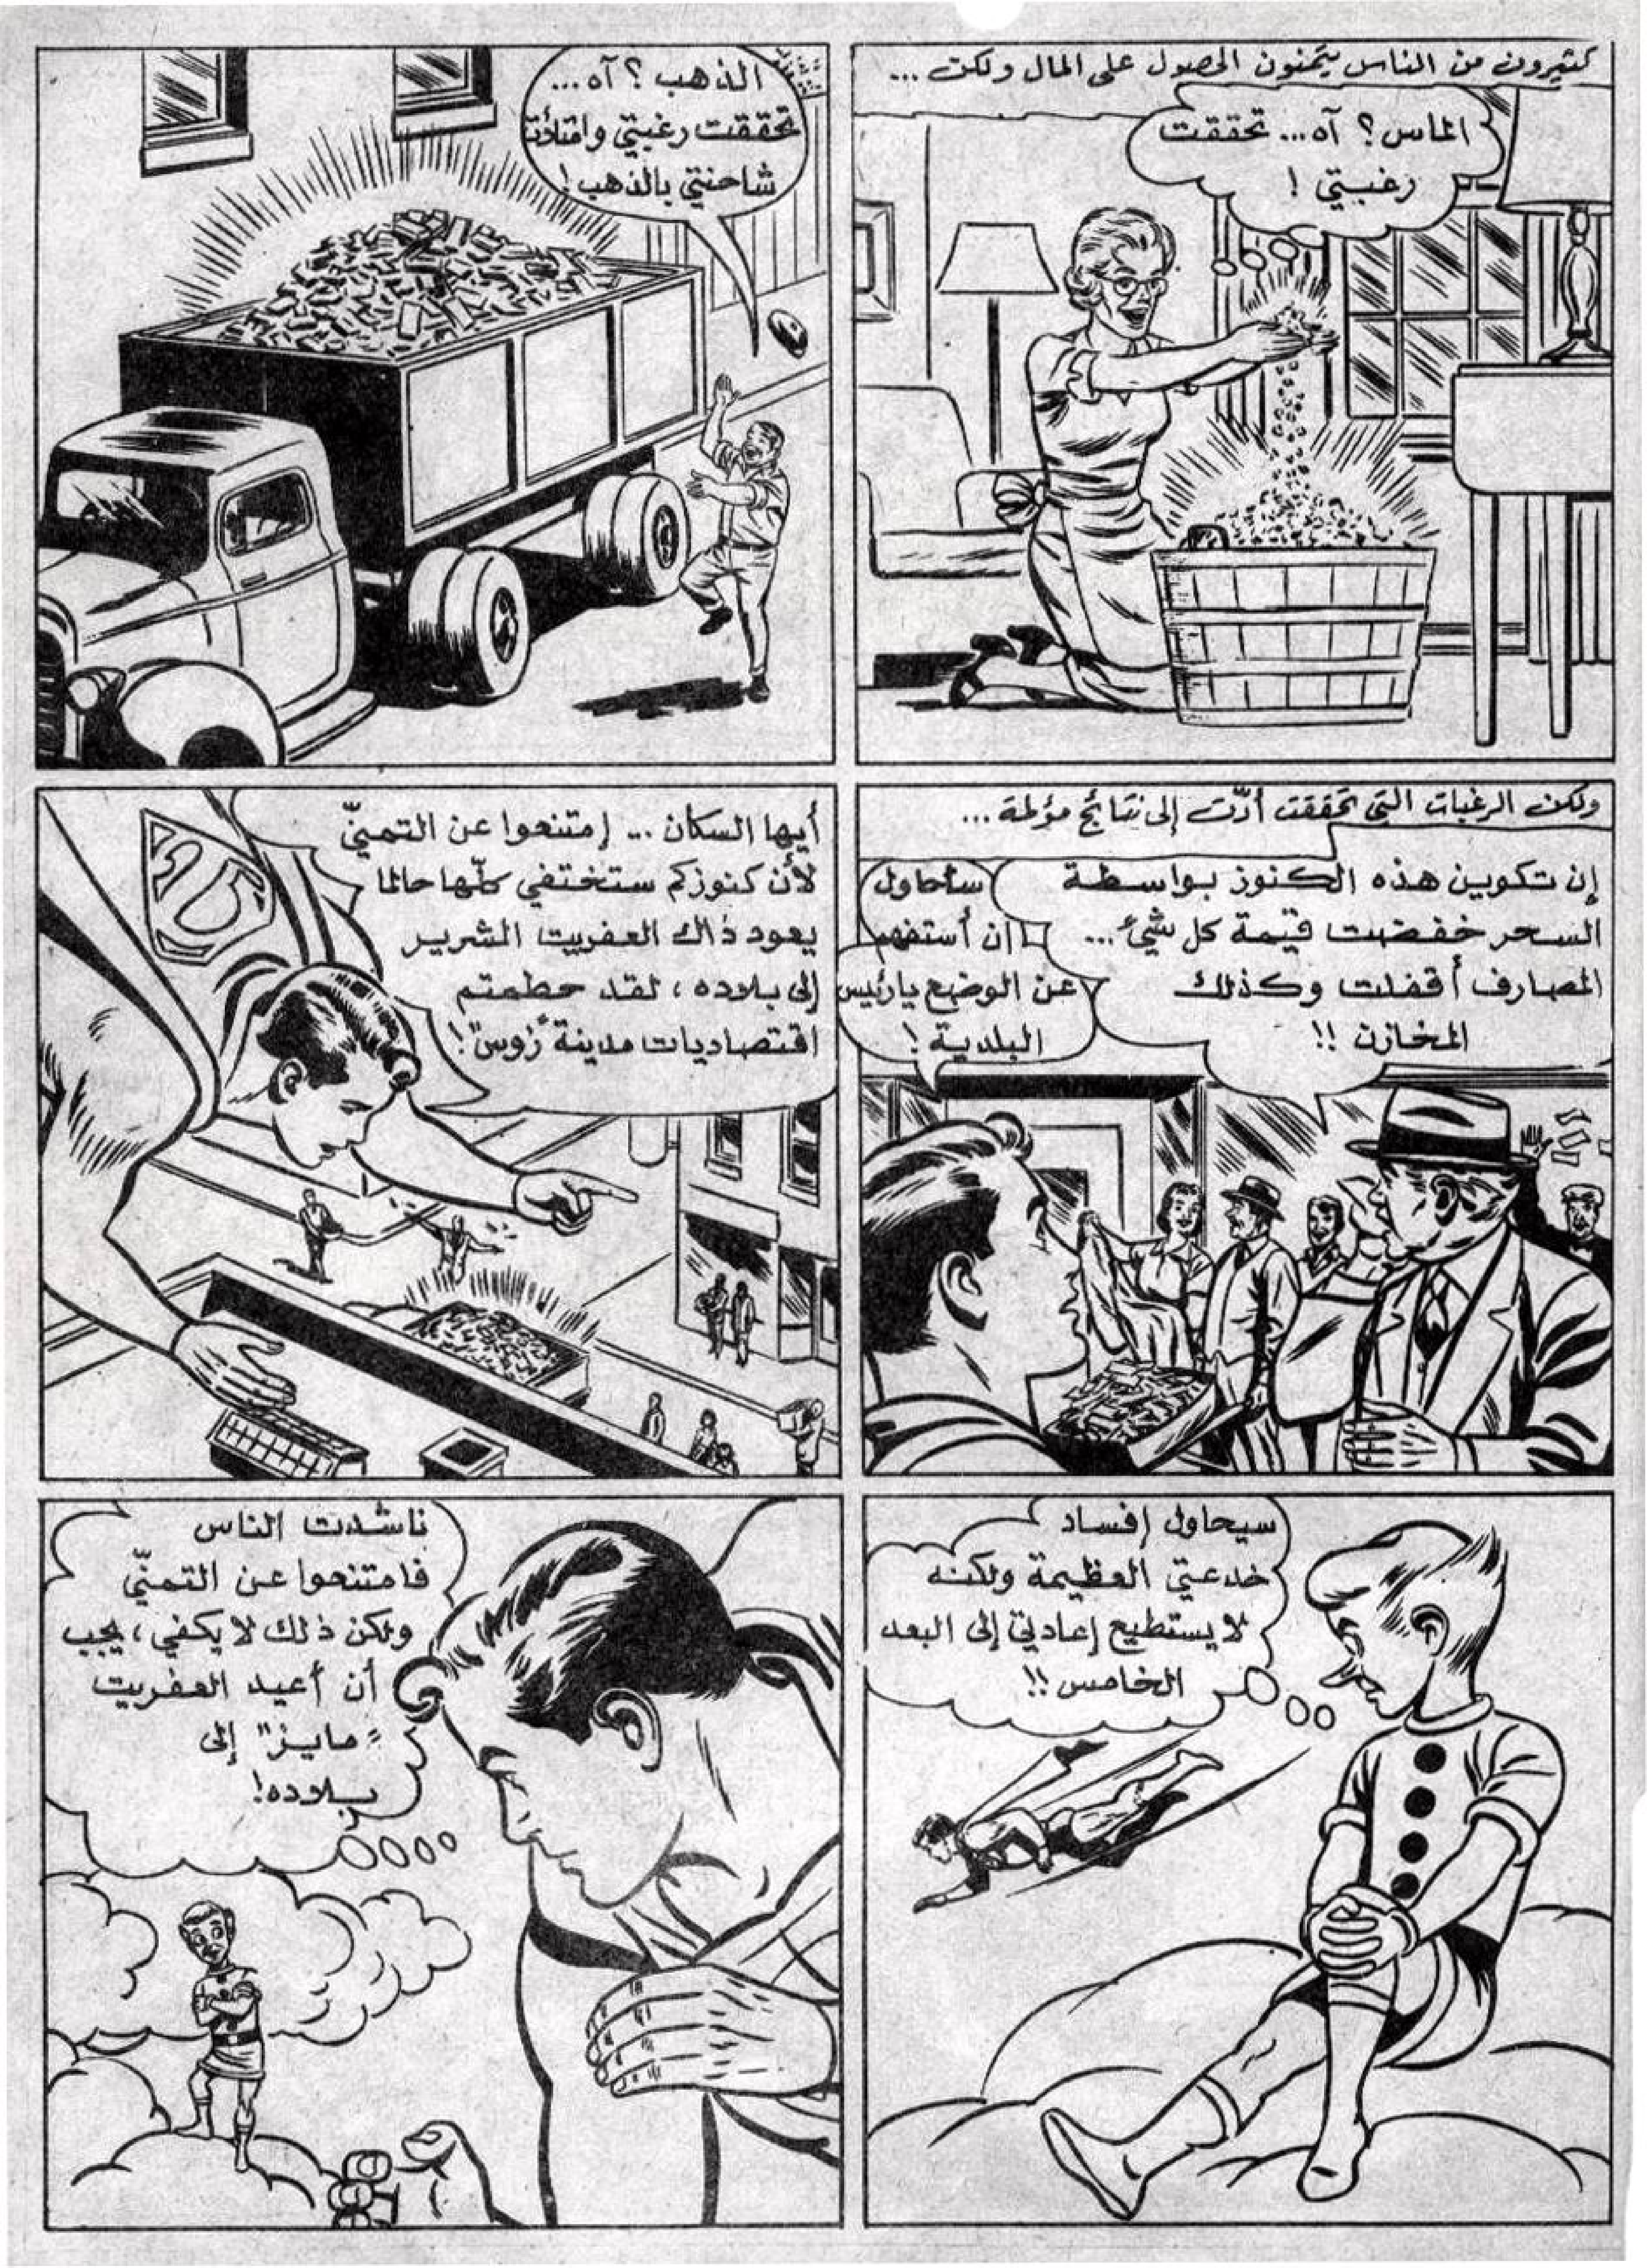 كثيرون من الناس يتمنون الحصول على المال ولكن ...
الماس ؟ آه ... تحققت
رغبتي !
الذهب ؟ آه ...
تحققت رغبتي وامتلأت
شاحنتي بالذهب !
ولكن الرغبات التي تحققت أدّت إلى نتائج مؤلمة ...
إن تكوين هذه الكنوز بواسطة
السحر خفضت قيمة كل شيء ...
المصارف أقفلت وكذلك
المخازن !!
سأحاول
ان أستفهم
عن الوضع يا رئيس
البلدية !
أيها السكان ... إمتنعوا عن التمنيّ
لأن كنوزكم ستختفي كلّها حالما
يعود ذاك العفريت الشرير
إلى بلاده ، لقد حطمتم
اقتصاديات مدينة "رُوس" !
سيحاول إفساد
خدعتي العظيمة ولكنه
لا يستطيع إعادتي إلى البعد
الخامس !!
ناشدت الناس
فامتنعوا عن التمنّي
ولكن ذلك لا يكفي ، يجب
أن أعيد العفريت
"مايـز" إلى
بلاده !